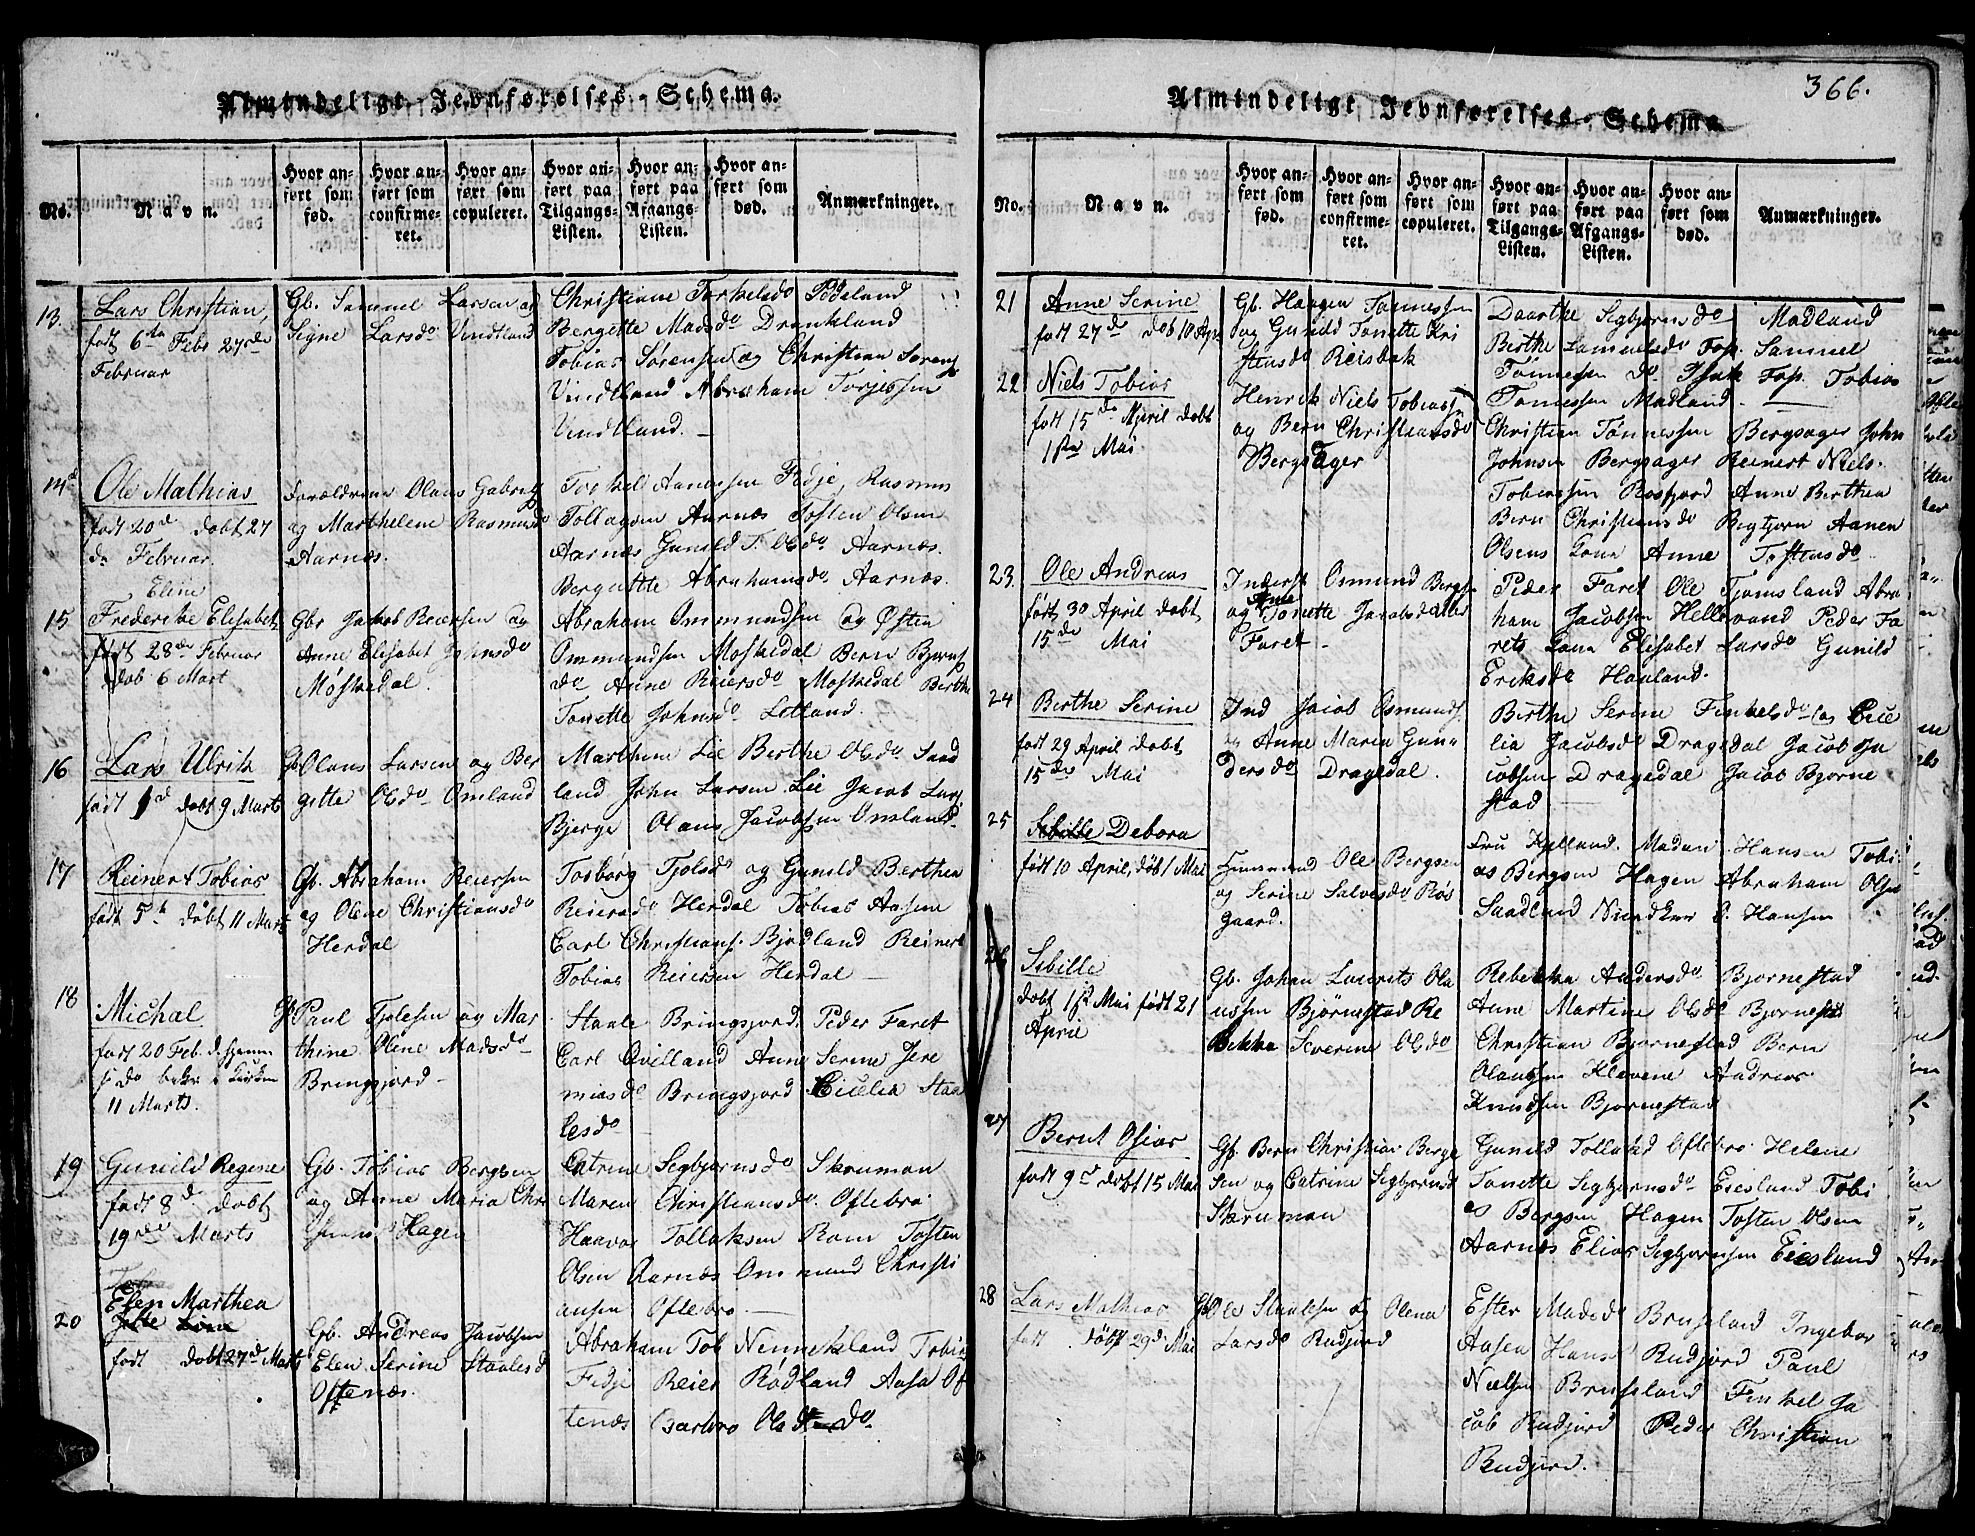 366.
Almindeligt Jevnførelses-Schema.
No.
Navn.
Hvor an-
ført som
fød.
Hvor an-
ført som
confirme-
ret.
Hvor an-
ført som
copuleret.
Hvor an-
ført paa
Tilgangs-
Listen.
Hvor an-
ført paa
Afgangs-
Listen.
Hvor an-
ført som
død.
Anmærkninger.
13.
Lars Christian,
født 6te Febr 27de
Februar
Gb. Samuel Larsen og
Signe Larsdo Vindtland
Christiane Torkelsdo Fødeland
Bergitte Madsdo Drankland
Tobias Sørensen og Christian Sørens
Vindtland Abraham Torjessen
Vindtland.
14
Ole Mathias
født 20d døbt 27
do Februar
Forældrene Olaus Gabriels
og Marthelene Rasmusd
Aarnæs.
Torkel Aanensen Fedje, Rasmus
Tollagsen Aarnæs Tosten Olsen
Aarnæs Gunild T. Olsdo Aarnæs.
Bergitte Abrahamsdo Aarnæs.
15
Eline
Frederike Elisabet
født 28de Februar
døb 6 Mart
Gbr Jakob Reiersen og
Anne Elisabet Johnsdo
Møskedal.
Abraham Ommundsen og Østen
Ommundsen Moskedal Bern Bjørns
do Anne Reiersdo Moskedal Berthe
Tonette Johnsdo Letland.
16
Lars Ulrik
født 1d døbt 9 Marts
Gb Olaus Larsen og Ber
gitte Olsdo Omland
Marthem Lie Berthe Olsdo Sand
land John Larsen Lie Jacob Lars
Bjerge Olaus Jacobsen Omland
17
Reinert Tobias
født 5te døbt 11 Marts
Gb. Abraham Reiersen
og Olene Christiansdo
Herdal
Torborg Tjølsdo og Gunild Berthea
Reiersdo Herdal Tobias Aasem
Carl Christians. Bjødland Reinert
Tobias Reiersen Herdal
18
Michal
født 20 Feb. d. hjemme
do bekr i Kirken
11 Marts.
Gf Paul Tjølesen og Mar
thine Olene Madsdo
Bringsjord
Staale Bringsjord, Peder Faret
Carl Qvilland Anne Serine Jere
miasdo Bringsjord Cicelia Staa
lesdo
19
Gunild Regine
født 8de døbt
19de Marts
Gb. Tobias Bergsen
og Anne Maria Chri
Hagen
Catrine Segbjørnsdo Skruman
Maren Christiansdo. Oftebro.
Haavor Tollaksen Rom Tosten
Olsen Aarnæs Ommund Christi
ansen Oftebro.
20
Elen Marthea
født døbt 27d Marts
Gb. Andreas Jacobsen
Elen Serine Staalesd
Oftenæs.
Abraham Tob Nennekland Tobias
Fedje Reier Rødland Aasa Of
tenæs Barbro Olsd do.
Almindeligt Jevnførelses-Schema.
No.
Navn.
Hvor an-
ført som
fød.
Hvor an-
ført som
confirme-
ret.
Hvor an-
ført som
copuleret.
Hvor an-
ført paa
Tilgangs-
Listen.
Hvor an-
ført paa
Afgangs-
Listen.
Hvor an-
ført som
død.
Anmærkninger.
21
Anne Serine
født 27de døb 10 Apr
Gb. Haagen Tønnessen
og Gunild Tonette Kri
stensdo Reisbak
Daarthe Segbjørnsdo Madland
Berthe Samuelsdo Fop. Samuel
Tønnessen do Isak Fop. Tobias
Tønnessen Madland.
22
Niels Tobias
født 15de April døbt
1ste Mai
Henrik Niels Tobiass
og Bern Christiansdo
Bergsager
Christian Tønnessen Bergsager John
Johnsen Bergsager Reinert Niels.
Tobiassen Rosfjord Anne Berthea
Bern Christiansdo Begtjørn Aanen
Olsens Kona Anne Tostensdo
23
Ole Andreas
født 30 April døbt
15de Mai
Inderst Osmund Bergs
og Anne Tonette Jacobsdatter
Faret
Peder Faret Ole Tjomsland Abra
ham Jacobsen Hellevand Peder Fa
rets Kona Elisabet Larsdo Gunild
Eriksdo Houland.
24
Berthe Serine
født 29 April døbt
15de Mai
Ind Jacob Osmunds.
og Anne Maria Gun-
dersdo Dragedal.
Berthe Serine Finkelsdo og Cice
lia Jacobsdo Dragedal Jacob Ja
cobsen Dragedal Jacob Bjørne
stad
25
Sibille Debora
født 10 April, døb 1 Mai
Huusmand Ole Bergsen
og Serine Salvesdo Røs
gaard.
Fru Kjelland. Madam Hansen Tobi
as Bergsen Hagen Abraham Olsen
Saadland Niendker O. Hansen
26
Sibille
døbt 1st Mai født 21
Aprie
Gb. Johan Laurits Ola
ussen Bjørnestad Re
Bekka Severine Olsdo
Rebekka Andersdo Bjørnestad
Anne Martine Olsd Bjørnestd
Christian Bjørnestad Bern
Olaussen Klevene Andreas
Knudsen Bjørnestad
27
Bernt Osias
født 9d døbt 15 Mai
Gf. Bern Christian Berge
sen og Catrine Segbjørnsd
Skruman
Gunild Tollaksd Oftebro Helene
Tonette Segbjørnsdo Eiesland Tobi
as Bergsen Hagen Tosten Olsen
Aarnæs Elias Segbjørnsen Eiesland
28
Lars Mathias
født døbt 29d. Mai
Gb Ole Staalesen og Olena
Larsdo Rudjord
Ester Madsd Brusland Ingebor
Aasen Hans Rudjord Paul
Nielsen Bruseland Finkel Ja
cob Rudjord Peder Christian
Rudjord.